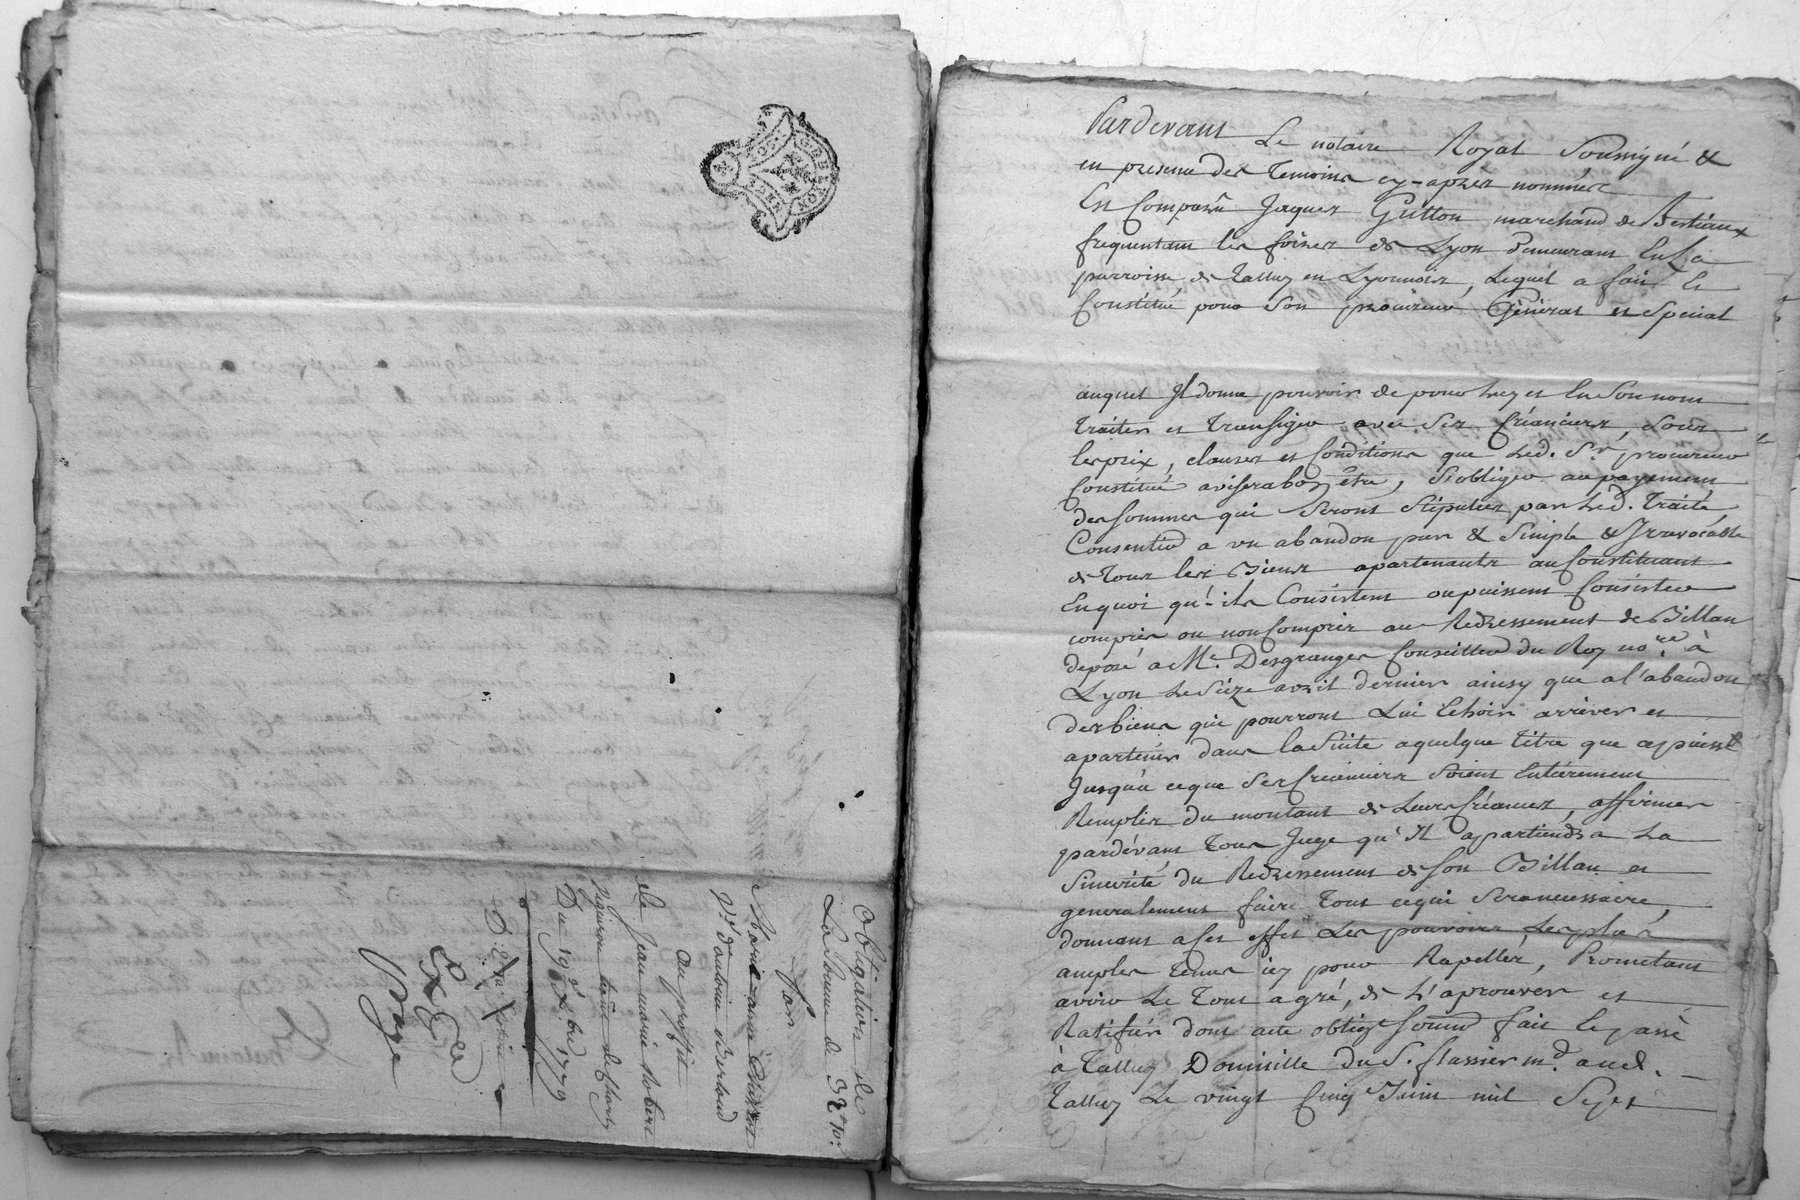 obligation de
La Somme de 32tt 10s
par
anne
Ve d'antoine Berland
au profit
de Jean marie Robert
Vigneron
Du 19e Xbre 1779
Expédié
Page
Pardevant Le notaire Royal Soussigné &
en presence des Temoins cy-après nommés
Est Comparu Jaques Gutton marchand de Bestiaux
frequentant les foires de Lyon demeurant En la
parroisse de Talluy en Lyonnois, Lequel a fait Et
Constitué pour Son procureur Général et Special
auquel Il donne pouvoir de pour Luy et En Son nom
Traiter et Transiger avec Ses Créanciers, Sous
les prix, clauses et Conditions que Led. Sr. procureur
Constitué avisera bon être, S'obliger au payement
des Sommes qui Seront Stipulées par Led. Traité,
Consentir a un abandon pur & Simple & Irrevocable
de Tous les Biens apartenants au Constituant
En quoi qu'ils Consistent ou puissent Consister
compris ou non Compris au Redressement de Billan
deposé a Me. Desgranges Conseiller du Roy nore. à
Lyon Le Seize avril dernier ainsy que a l'abandon
des biens qui pourront Lui Echoir arriver et
apartenir dans la Suite a quelque titre que ce puisse
Jusqu'à ce que Ses Créanciers Soient Entièrement
Remplis du montant de Leurs Créances, affirmer
pardevant Tous Juge qu'Il apartiendra La
Sincerité du Redressement de Son Billan et
generalement faire Tout ce qui Sera necessaire,
donnant a Cet effet Les pouvoirs Les plus
amples Tenus icy pour Rapellés, Promettant
avoir Le Tout a gré, de L'aprouver et
Ratifier dont acte obligt Soumn fait Et passé
à Talluy Domicille du S. flassier md. aud.
Talluy Le vingt Cinq Juin mil Sept